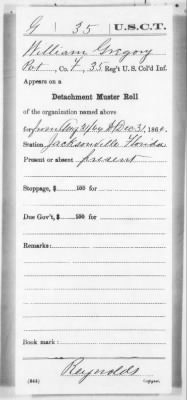 G 35 U.S.C.T.
William Gregory
Pvt, Co. F, 35 Reg't U. S. Col'd Inf.
Appears on a
Detachment Muster Roll
of the organization named above
for from Aug 31/64 to Dec 31, 186 .
Station Jacksonville Florida
Present or absent present
Stoppage, $ 100 for
Due Gov't, $ 100 for
Remarks:
Book mark:
Reynolds
(861) Copyist.